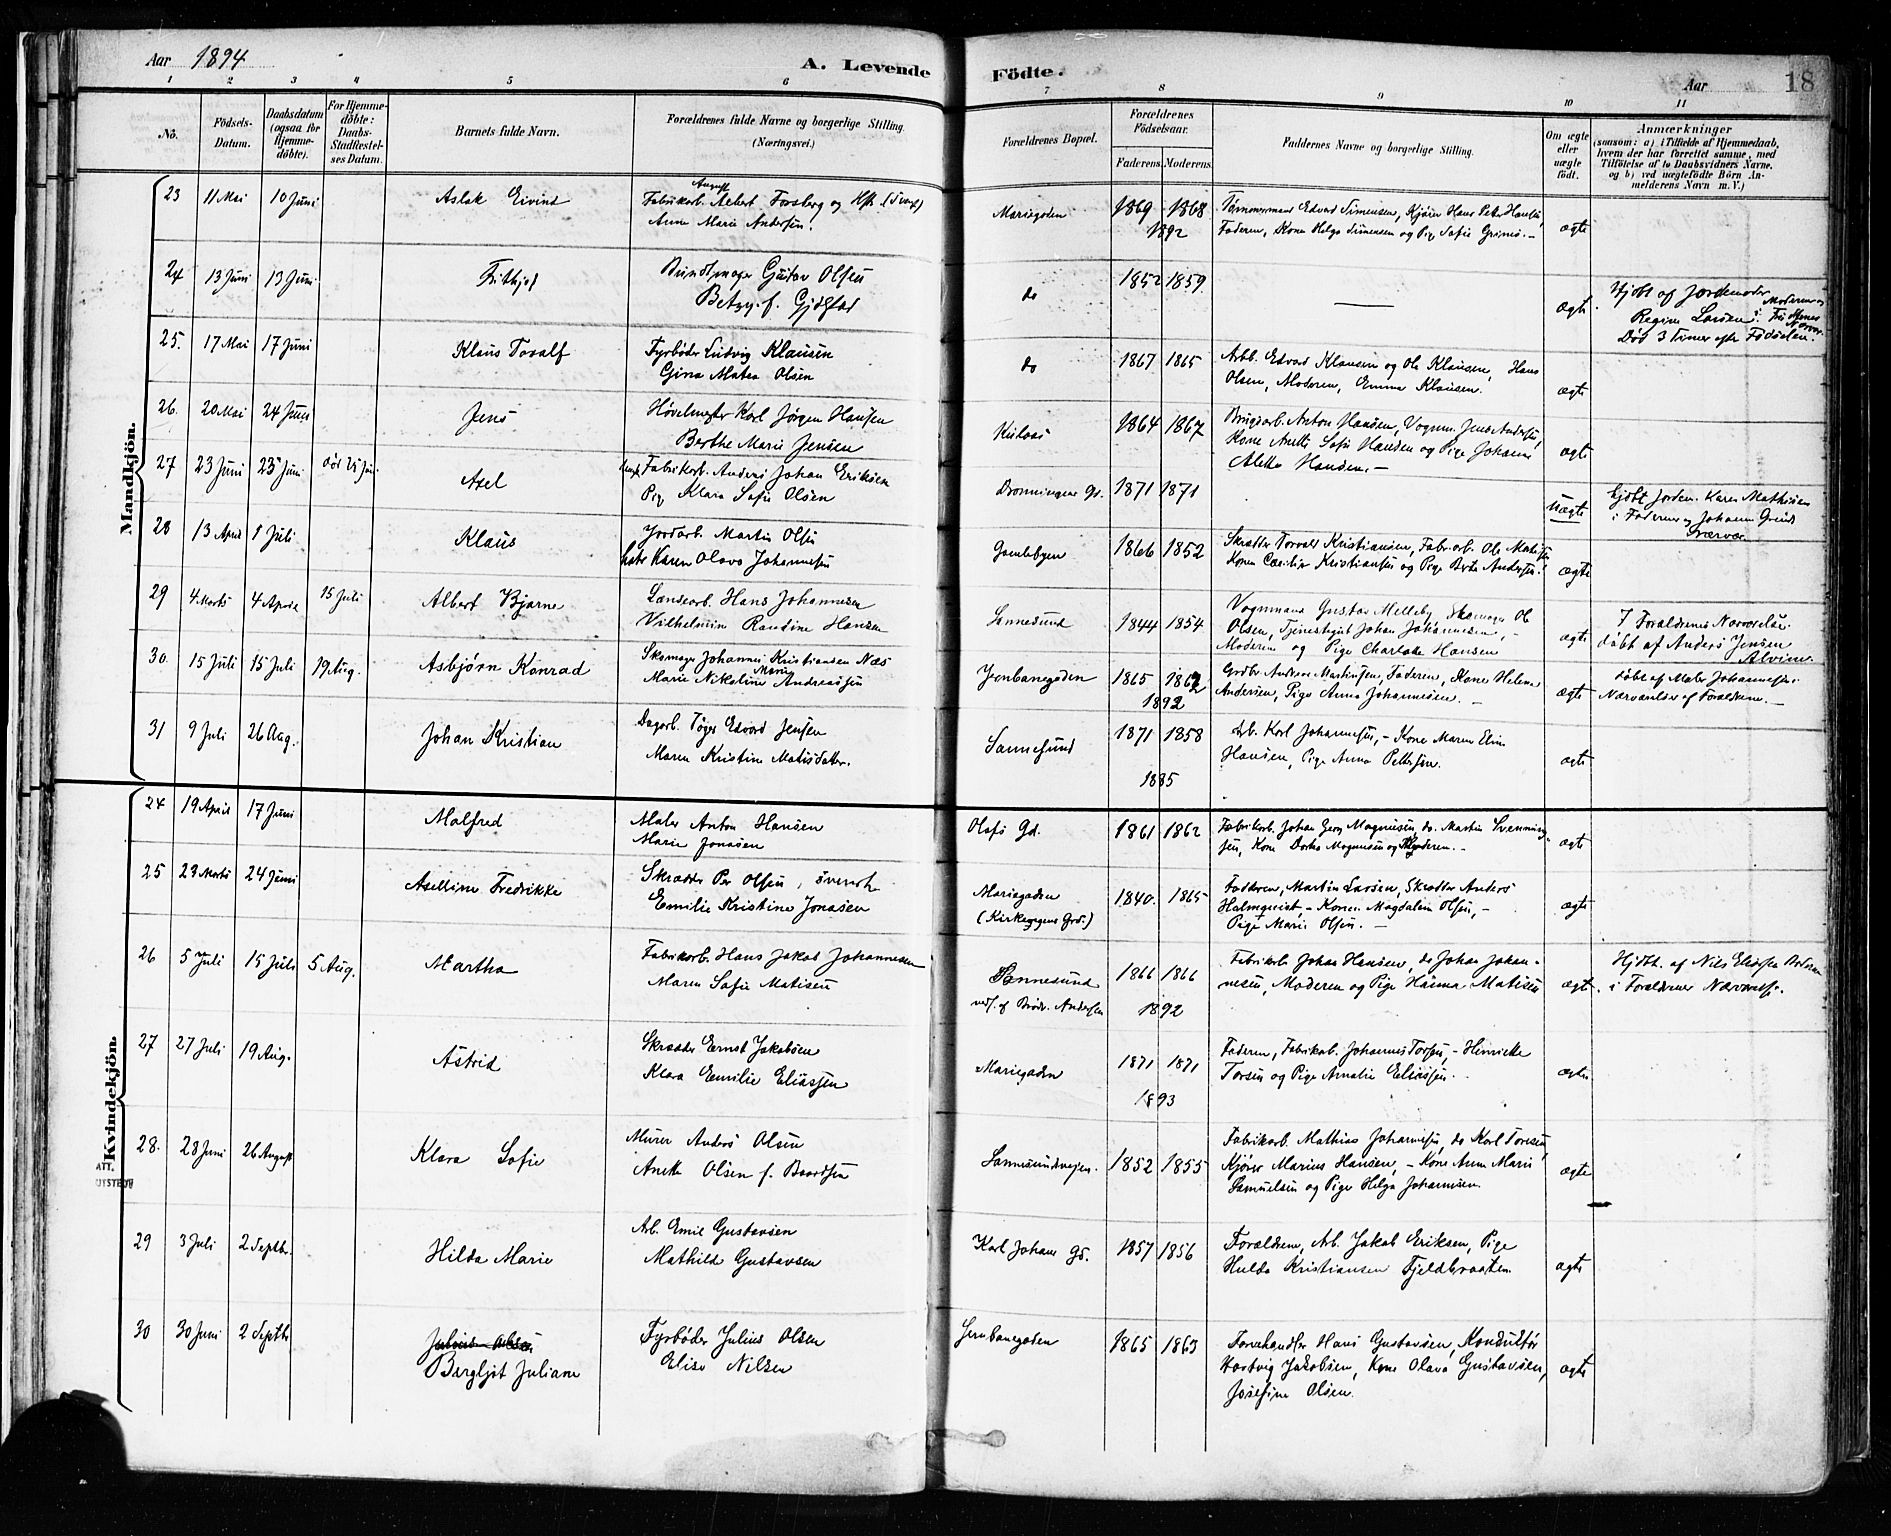 Aar 1894
A. Levende Födte.
Aar 18
1 2 3 4 5 6 7 8 9 10 11
No.
Födsels-Datum.
Daabsdatum (ogsaa for Hjemme-döbte).
For Hjemme-döbte: Daabs-Stadfæstel-ses Datum.
Barnets fulde Navn.
Forældrenes fulde Navne og borgerlige Stilling. (Næringsvei.)
Forældrenes Bopæl.
Forældrenes Födselsaar.
Faderens. Moderens.
Faddernes Navne og borgerlige Stilling.
Om ægte eller uægte født.
Anmærkninger
(saasom: a) i Tilfælde af Hjemmedaab,
hvem der har forrettet samme, med
Tilföielse af to Daabsvidners Navne.
og b) ved uægtefödte Börn An-
melderens Navn m. V.)
Mandkjön.
23 11 Mai 10 Juni Aslak Eivind Fabrikarb. August Albert Forsberg og Hst.
Anne Marie Andersen. Mariegaden 1869 1868 1892 Edvard Simensen, Kjører Hans Peter Hansen,
Faderen, Kone Helga Simensen og Pige Sofie ægte
24 13 Juni 13 Juni Frithjof Bundtmager Gustav Olsen
Betzy f. Gjølstad do 1852 1859 — ægte Hjdbt af Jordemoder
Regine Larsen i
Død 3 Timer efter Fødselen.
25. 17 Mai 17 Juni Klaus Toralf Fyrbøder Ludvig Klausen
Gina Matea Olsen do 1867 1865 Arb. Edvard Klausen og Ole Klausen, Hans
Olsen, Moderen, Emma Klausen. ægte
26. 20 Mai 24 Juni Jens Høvelmester Karl Jørgen Hansen
Berthe Marie Jensen 1864 1867 Brugsarb. Anton Hansen, Vognm. Jens Andersen,
Kone Anette Sofie Hansen og Pige Johanne
Aletta Hansen. — ægte
27 23 Juni 25 Juni Axel Fabrikarb. Anders Johan Eriksen
Pige Klara Sofie Olsen Dronningens Gd. 1871 1871 uægte Hjdbt Jordem. Karen Mathisen
i Faderens og Johanne
Nærvær
28 13 April 1 Juli Klaus Jordarb. Martin Olsen
Karen Olava Johannesen Gamlebyen 1866 1852 Skrædder Torvald Kristiansen, Fabr.arb. Ole
Konen Cæcilie Kristiansen og Pige Berta Andersen. ægte
29 4 Marts 4 April 15 Juli Albert Bjarne Landsarb. Hans Johannesen
Vilhelmine Randine Hansen Sannesund 1844 1854 Vognmand Gustav Melleby, Skomager Ole
Olsen, Tjenestegut Johan Johannesen, -
Moderen og Pige Charlotte Hansen ægte I Forældrenes Nærværelse
døbt af Anders Jensen
Alvim.
30. 15 Juli 15 Juli 19 Aug. Asbjørn Konrad Skomager Johannes Kristiansen Næs
Marie Nikoline Marie Andreassen Jernbanegaden 1865 1892 Andreas Martinsen, Faderen, Kone Helene
Andersen, Pige Anna Johannesen. ægte døbt af Maler Johannesen
Nærværelse af Forældrene. —
31 9 Juli 26 Aug. Johan Kristian Dagarb. Tøger Edvard Jensen
Maren Kristine Matisdatter. Sannesund 1871 1858 1885 Arb. Karl Johannesen, - Kone Maren Elin
Hansen, Pige Anna Pettersen. ægte
Kvindekjön.
24 19 April 17 Juni Malfred Maler Anton Hansen
Marie Jonasen Olafs Gd. 1861 1862 Fabrikarb. Johan Georg Magnusen, do. Martin Svenning-
sen, Kone Dorthe Magnusen og Moderen. - ægte
25 23 Marts 24 Juni Axelline Fredrikke Skrædder Per Olsen, svensk
Emilie Kristine Jonasen Mariegaden
(Kirkegagens Grd.) 1840. 1865 Faderen, Martin Larsen, Skrædder Anders
Halmquist, - Konen Magdalene Olsen, -
Pige Marie Olsen. — ægte
26 5 Juli 15 Juli 5 Aug. Martha Fabrikarb. Hans Jakob Johannesen
Maren Sofie Matisen Sannesund
Brødr. Andersen 1866 1866 1892 Fabrikarb Johan Hansen, do Johan Johan-
nesen, Moderen og Pige Hanna Matisen ægte Hjdbt. af Nils Eliassen
i Forældrenes Nærværelse.
27 27 Juli 19 Aug. Astrid Skrædder Ernst Jakobsen
Klara Emilie Eliassen Mariegaden 1871 1871 1893 Faderen, Fabrikarb. Johannes Torsen, - Henriette
Torsen og Pige Amalie Eliassen. ægte
28. 28 Juni 26 August Klara Sofie Murer Anders Olsen
Anette Olsen f. Baardsen Sannesundveien. 1852 1855 Fabrikarb. Mathias Johannesen, do Karl Toresen,
Kjører Marius Hansen, - Kone Anne Marie
Samuelsen og Pige Helga Johannesen. ægte
29 3 Juli 2 Septbr. Hilda Marie Arb. Emil Gustavsen
Mathilde Gustavsen Karl Johans Gd. 1857 1856 Forældrene, Arb. Jakob Eriksen, Pige
Hulda Kristiansen Fjeldbraaten ægte
30 30 Juni 2 Septbr Bergljot Juliane Fyrbøder Julius Olsen
Elise Nilsen Jernbanegaden 1865 1863 Hans Gustavsen, Konduktør
Hartvig Jakobsen, Kone Olava Gustavsen,
Josefine Olsen. ægte